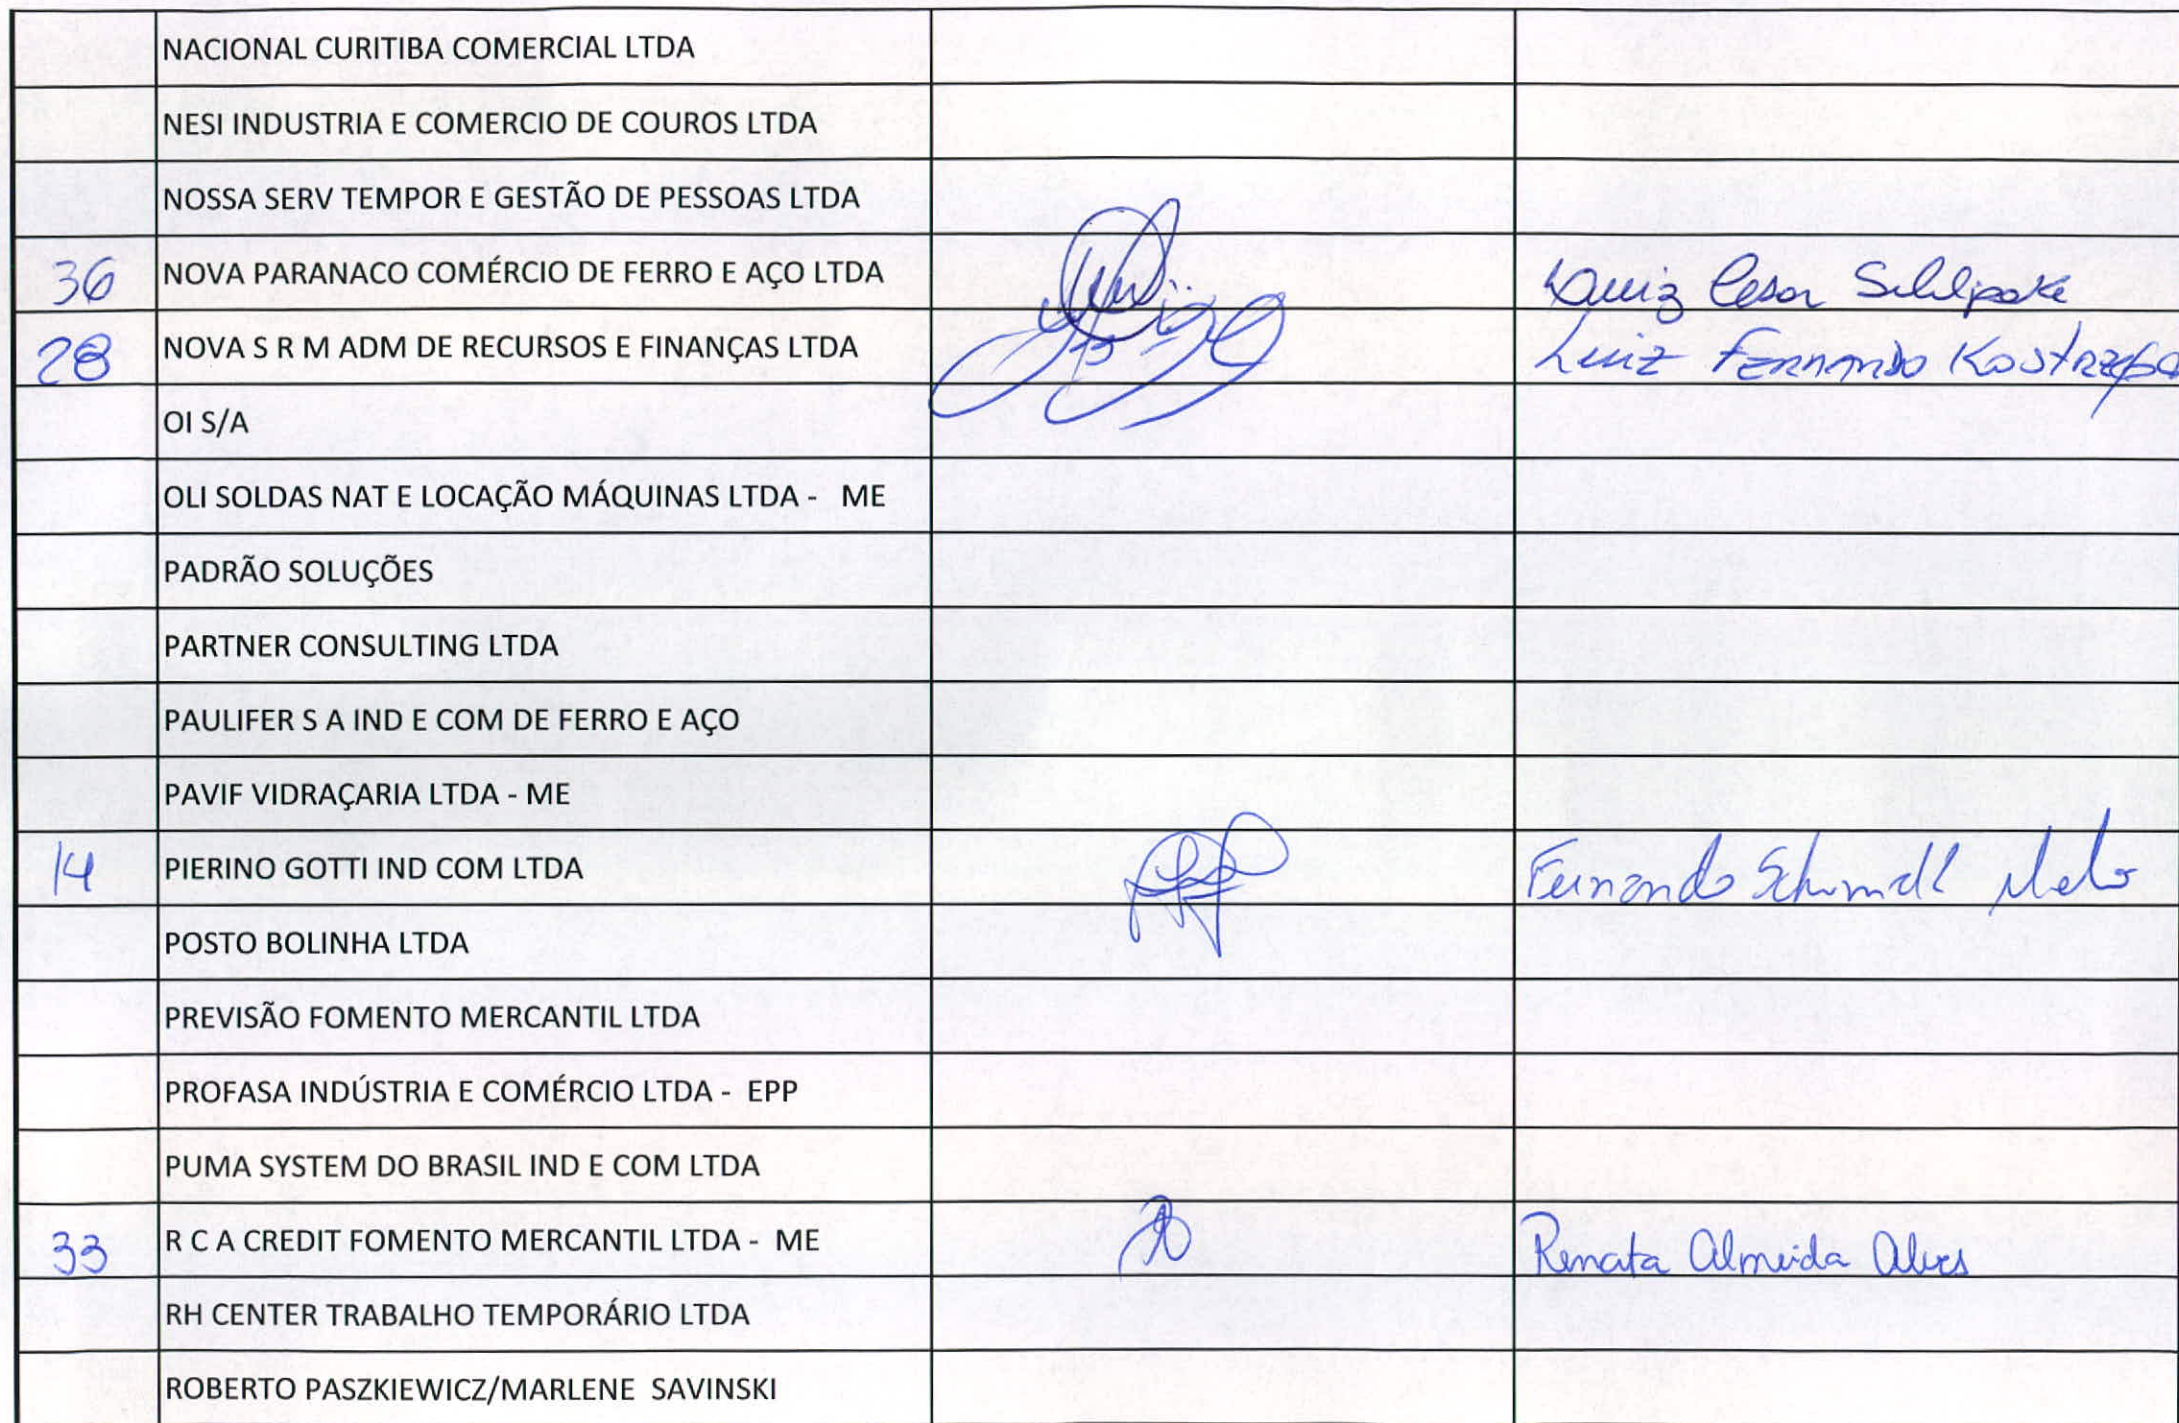 NACIONAL CURITIBA COMERCIAL LTDA
NESI INDUSTRIA E COMERCIO DE COUROS LTDA
NOSSA SERV TEMPOR E GESTÃO DE PESSOAS LTDA
36 NOVA PARANACO COMÉRCIO DE FERRO E AÇO LTDA Luiz Cesar
28 NOVA S R M ADM DE RECURSOS E FINANÇAS LTDA Luiz Fernando
OI S/A
OLI SOLDAS NAT E LOCAÇÃO MÁQUINAS LTDA - ME
PADRÃO SOLUÇÕES
PARTNER CONSULTING LTDA
PAULIFER S A IND E COM DE FERRO E AÇO
PAVIF VIDRAÇARIA LTDA - ME
14 PIERINO GOTTI IND COM LTDA Fernando
POSTO BOLINHA LTDA
PREVISÃO FOMENTO MERCANTIL LTDA
PROFASA INDÚSTRIA E COMÉRCIO LTDA - EPP
PUMA SYSTEM DO BRASIL IND E COM LTDA
33 R C A CREDIT FOMENTO MERCANTIL LTDA - ME Renata Almeida Alves
RH CENTER TRABALHO TEMPORÁRIO LTDA
ROBERTO PASZKIEWICZ/MARLENE SAVINSKI